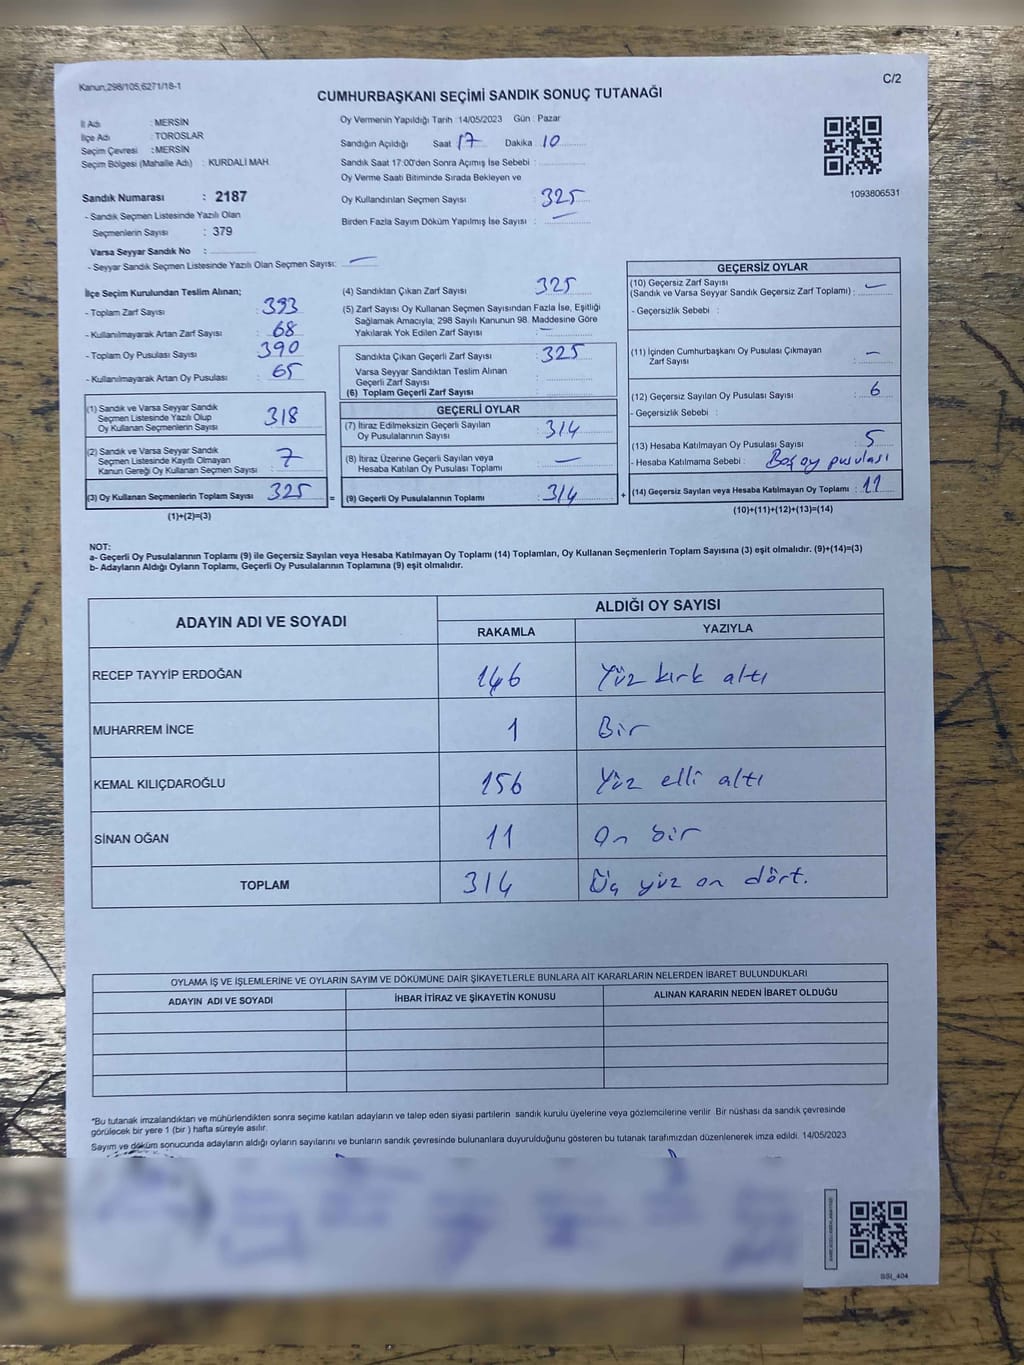 Kanun,298/105,6271/18-1
C/2
CUMHURBAŞKANI SEÇİMİ SANDIK SONUÇ TUTANAĞI
İl Adı : MERSİN
İlçe Adı : TOROSLAR
Seçim Çevresi : MERSİN
Seçim Bölgesi (Mahalle Adı) : KURDALİ MAH.
Sandık Numarası : 2187
- Sandık Seçmen Listesinde Yazılı Olan
Seçmenlerin Sayısı : 379
Varsa Seyyar Sandık No :
- Seyyar Sandık Seçmen Listesinde Yazılı Olan Seçmen Sayısı: —
Oy Vermenin Yapıldığı Tarih :14/05/2023 Gün : Pazar
Sandığın Açıldığı Saat 17 Dakika 10
Sandık Saat 17:00'den Sonra Açımış İse Sebebi :
Oy Verme Saati Bitiminde Sırada Bekleyen ve
Oy Kullandırılan Seçmen Sayısı : 325
Birden Fazla Sayım Döküm Yapılmış İse Sayısı : —
1093806531
İlçe Seçim Kurulundan Teslim Alınan;
- Toplam Zarf Sayısı : 393
- Kullanılmayarak Artan Zarf Sayısı : 68
- Toplam Oy Pusulası Sayısı : 390
- Kullanılmayarak Artan Oy Pusulası : 65
(1) Sandık ve Varsa Seyyar Sandık
Seçmen Listesinde Yazılı Olup
Oy Kullanan Seçmenlerin Sayısı : 318
(2) Sandık ve Varsa Seyyar Sandık
Seçmen Listesinde Kayıtlı Olmayan
Kanun Gereği Oy Kullanan Seçmen Sayısı : 7
(3) Oy Kullanan Seçmenlerin Toplam Sayısı : 325 =
(1)+(2)=(3)
(4) Sandıktan Çıkan Zarf Sayısı : 325
(5) Zarf Sayısı Oy Kullanan Seçmen Sayısından Fazla İse, Eşitliği
Sağlamak Amacıyla; 298 Sayılı Kanunun 98. Maddesine Göre
Yakılarak Yok Edilen Zarf Sayısı : —
Sandıkta Çıkan Geçerli Zarf Sayısı : 325
Varsa Seyyar Sandıktan Teslim Alınan
Geçerli Zarf Sayısı :
(6) Toplam Geçerli Zarf Sayısı :
GEÇERLİ OYLAR
(7) İtiraz Edilmeksizin Geçerli Sayılan
Oy Pusulalarının Sayısı : 314
(8) İtiraz Üzerine Geçerli Sayılan veya
Hesaba Katılan Oy Pusulası Toplamı : —
(9) Geçerli Oy Pusulalarının Toplamı : 314 +
GEÇERSİZ OYLAR
(10) Geçersiz Zarf Sayısı
(Sandık ve Varsa Seyyar Sandık Geçersiz Zarf Toplamı) : —
- Geçersizlik Sebebi :
(11) İçinden Cumhurbaşkanı Oy Pusulası Çıkmayan
Zarf Sayısı : —
(12) Geçersiz Sayılan Oy Pusulası Sayısı : 6
- Geçersizlik Sebebi :
(13) Hesaba Katılmayan Oy Pusulası Sayısı : 5
- Hesaba Katılmama Sebebi : Boş oy pusulası
(14) Geçersiz Sayılan veya Hesaba Katılmayan Oy Toplamı : 11
(10)+(11)+(12)+(13)=(14)
NOT:
a- Geçerli Oy Pusulalarının Toplamı (9) ile Geçersiz Sayılan veya Hesaba Katılmayan Oy Toplamı (14) Toplamları, Oy Kullanan Seçmenlerin Toplam Sayısına (3) eşit olmalıdır. (9)+(14)=(3)
b- Adayların Aldığı Oyların Toplamı, Geçerli Oy Pusulalarının Toplamına (9) eşit olmalıdır.
ADAYIN ADI VE SOYADI ALDIĞI OY SAYISI
RAKAMLA YAZIYLA
RECEP TAYYİP ERDOĞAN 146 Yüz kırk altı
MUHARREM İNCE 1 Bir
KEMAL KILIÇDAROĞLU 156 Yüz elli altı
SİNAN OĞAN 11 On bir
TOPLAM 314 Üç yüz on dört.
OYLAMA İŞ VE İŞLEMLERİNE VE OYLARIN SAYIM VE DÖKÜMÜNE DAİR ŞİKAYETLERLE BUNLARA AİT KARARLARIN NELERDEN İBARET BULUNDUKLARI
ADAYIN ADI VE SOYADI İHBAR İTİRAZ VE ŞİKAYETİN KONUSU ALINAN KARARIN NEDEN İBARET OLDUĞU
*Bu tutanak imzalandıktan ve mühürlendikten sonra seçime katılan adayların ve talep eden siyasi partilerin sandık kurulu üyelerine veya gözlemcilerine verilir. Bir nüshası da sandık çevresinde
görülecek bir yere 1 (bir ) hafta süreyle asılır.
Sayım ve döküm sonucunda adayların aldığı oyların sayılarını ve bunların sandık çevresinde bulunanlara duyurulduğunu gösteren bu tutanak tarafımızdan düzenlenerek imza edildi. 14/05/2023
BSI_404